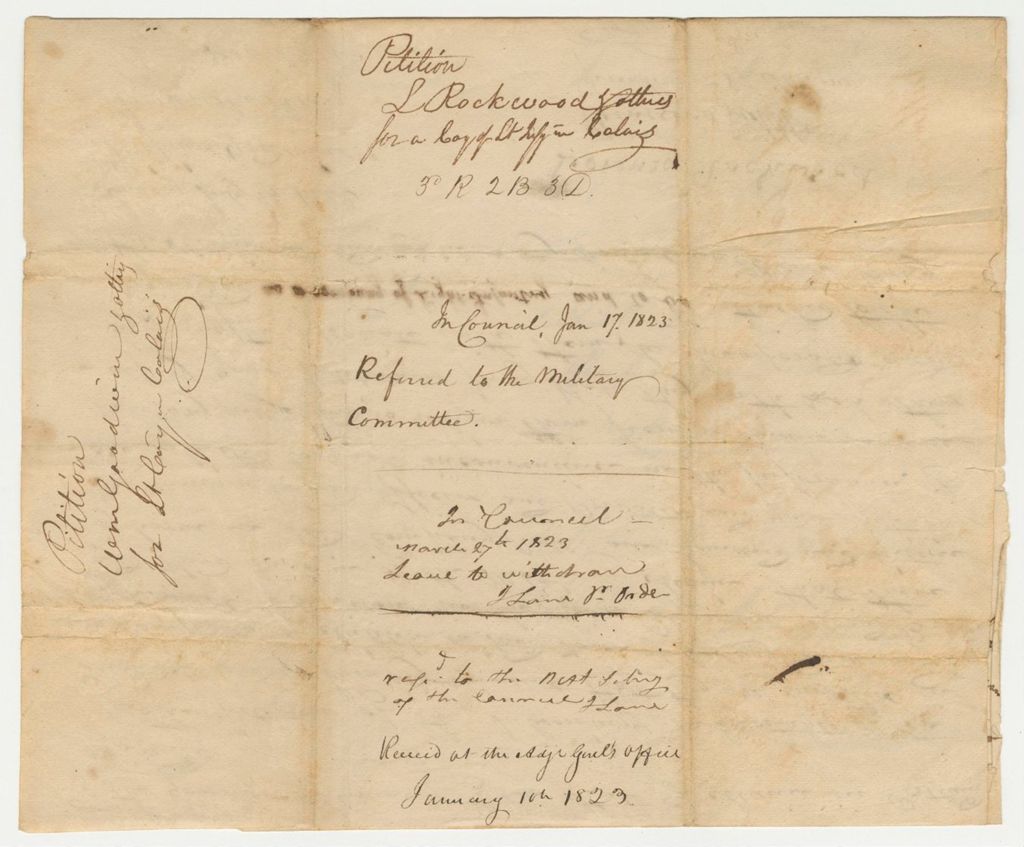 Petition
L Rockwood & others
for a Coy of Lt Infy in Calais
3d R 2 B 3 D.
In Council, Jan 17. 1823
Referred to the Military
Committee.
In Councill –
March 7th 1823
Leave to withdraw
J Lane Pr Order
refd to the next siting
of the Council J Lane
Receivd at the Adjt Genl's office
January 10th 1823
Petition
Wm Goodwin & others
for Lt Coy in Calais